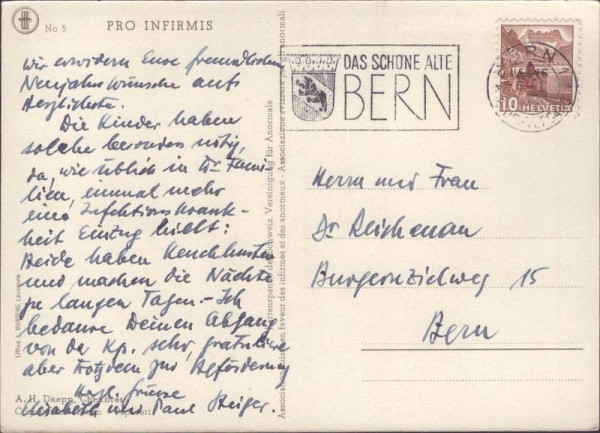 No 5 PRO INFIRMIS
wir erwidern Eure freundlichen
Neujahrswünsche aufs
Herzlichste.
Die Kinder haben
solche besonders nötig,
da, wie üblich in Dr. Fami-
lien, einmal mehr
eine Infektionskrank-
heit Einzug hielt:
Beide haben Keuchhusten
und machen die Nächte
zu langen Tagen - Ich
bedaure Deinen Abgang
von der Kp. sehr, gratuliere
aber trotzdem zur Beförderung
Herzl. Grüsse
Elisabeth und Paul Steiger.
A. H. Daepp,
Lausanne
Kartenspende der Schweiz. Vereinigung für Anormale
en faveur des infirmes et des anormaux - Associazione svizzera per gli anormali
DAS SCHÖNE ALTE
BERN
BERN
10 HELVETIA
Herrn und Frau
Dr Reichenau
Burgernzielweg 15
Bern